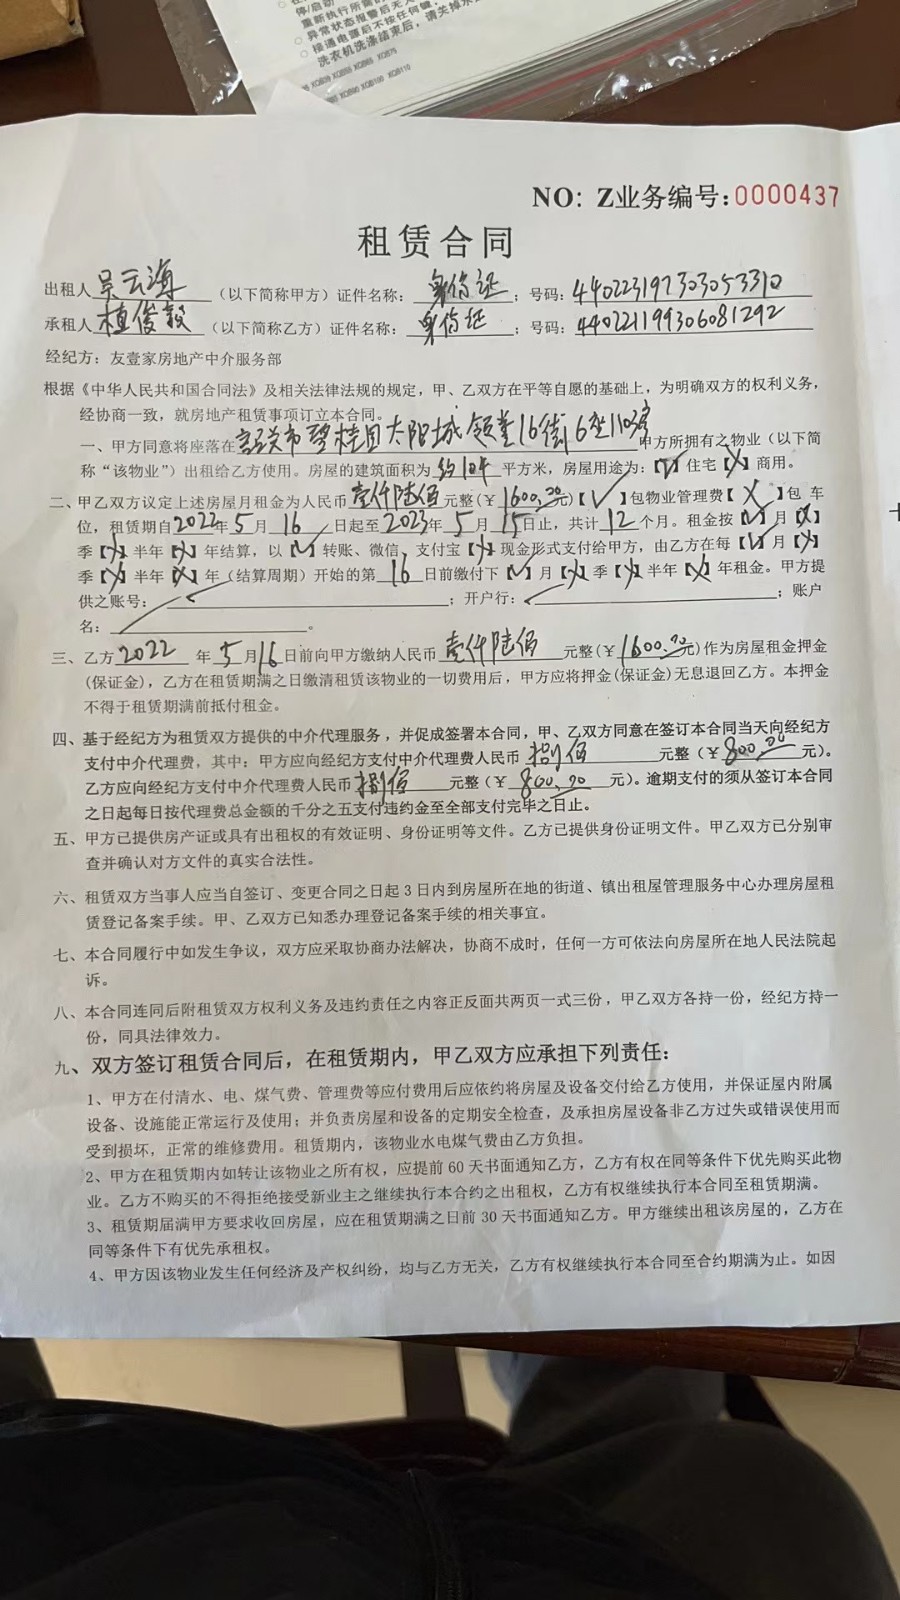 停/启动
重新执行所需的
异常状态报警后无
接通电源后不按任何键
洗衣机洗涤结束后，请关掉水
NO：Z业务编号：0000437
租赁合同
出租人吴云海（以下简称甲方）证件名称：身份证；号码：440223197303053310
承租人植俊毅（以下简称乙方）证件名称：身份证；号码：440221199306081292
经纪方：友壹家房地产中介服务部
根据《中华人民共和国合同法》及相关法律法规的规定，甲、乙双方在平等自愿的基础上，为明确双方的权利义务，
经协商一致，就房地产租赁事项订立本合同。
一、甲方同意将座落在韶关市碧桂园太阳城领堂16街6座110房甲方所拥有之物业（以下简
称“该物业”）出租给乙方使用。房屋的建筑面积为约104平方米，房屋用途为：【√】住宅【X】商用。
二、甲乙双方议定上述房屋月租金为人民币壹仟陆佰元整（￥1600.00元）【√】包物业管理费【X】包 车
位，租赁期自2022年5月16日起至2023年5月15日止，共计12个月。租金按【√】月【X】
季【X】半年【X】年结算，以【√】转账、微信、支付宝【X】现金形式支付给甲方，由乙方在每【√】月【X】
季【X】半年【X】年（结算周期）开始的第16日前缴付下【√】月【X】季【X】半年【X】年租金。甲方提
供之账号：；开户行：；账户
名：。
三、乙方2022年5月16日前向甲方缴纳人民币壹仟陆佰元整（￥1600.00元）作为房屋租金押金
(保证金)，乙方在租赁期满之日缴清租赁该物业的一切费用后，甲方应将押金(保证金)无息退回乙方。本押金
不得于租赁期满前抵付租金。
四、基于经纪方为租赁双方提供的中介代理服务，并促成签署本合同，甲、乙双方同意在签订本合同当天向经纪方
支付中介代理费，其中：甲方应向经纪方支付中介代理费人民币捌佰元整（￥800.00元）。
乙方应向经纪方支付中介代理费人民币捌佰元整（￥800.00元）。逾期支付的须从签订本合同
之日起每日按代理费总金额的千分之五支付违约金至全部支付完毕之日止。
五、甲方已提供房产证或具有出租权的有效证明、身份证明等文件。乙方已提供身份证明文件。甲乙双方已分别审
查并确认对方文件的真实合法性。
六、租赁双方当事人应当自签订、变更合同之日起3日内到房屋所在地的街道、镇出租屋管理服务中心办理房屋租
赁登记备案手续。甲、乙双方已知悉办理登记备案手续的相关事宜。
七、本合同履行中如发生争议，双方应采取协商办法解决，协商不成时，任何一方可依法向房屋所在地人民法院起
诉。
八、本合同连同后附租赁双方权利义务及违约责任之内容正反面共两页一式三份，甲乙双方各持一份，经纪方持一
份，同具法律效力。
九、双方签订租赁合同后，在租赁期内，甲乙双方应承担下列责任：
1、甲方在付清水、电、煤气费、管理费等应付费用后应依约将房屋及设备交付给乙方使用，并保证屋内附属
设备、设施能正常运行及使用；并负责房屋和设备的定期安全检查，及承担房屋设备非乙方过失或错误使用而
受到损坏，正常的维修费用。租赁期内，该物业水电煤气费由乙方负担。
2、甲方在租赁期内如转让该物业之所有权，应提前60天书面通知乙方，乙方有权在同等条件下优先购买此物
业。乙方不购买的不得拒绝接受新业主之继续执行本合约之出租权，乙方有权继续执行本合同至租赁期满。
3、租赁期届满甲方要求收回房屋，应在租赁期满之日前30天书面通知乙方。甲方继续出租该房屋的，乙方在
同等条件下有优先承租权。
4、甲方因该物业发生任何经济及产权纠纷，均与乙方无关，乙方有权继续执行本合同至合约期满为止。如因